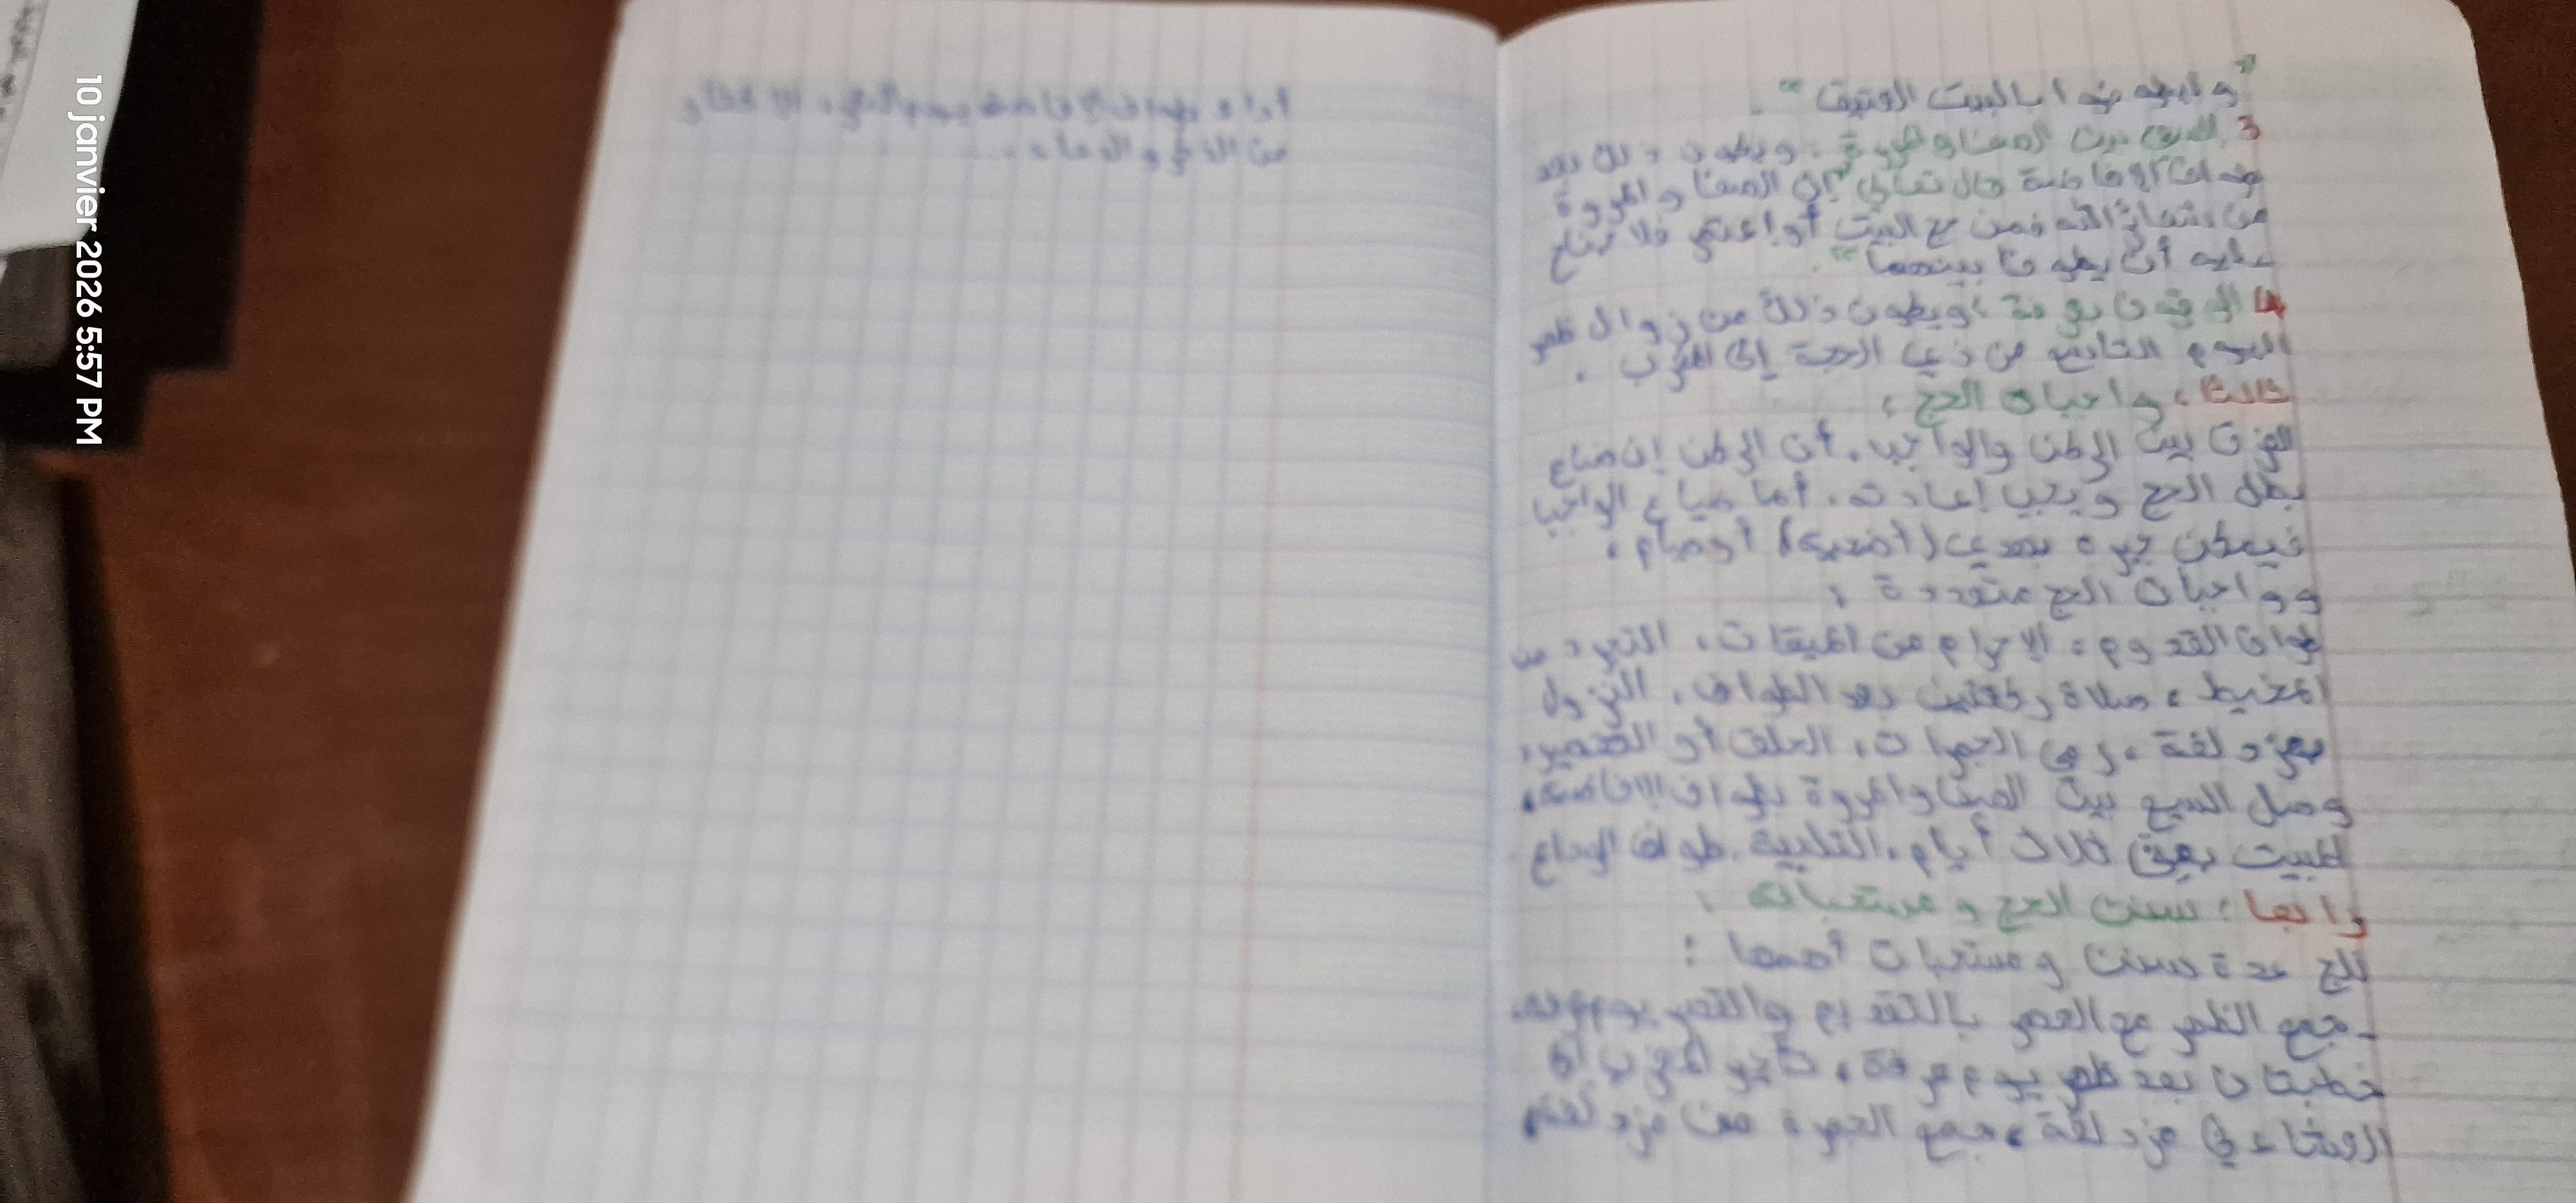 "و ليطوفوا بالبيت العتيق".
3 السعي بين الصفا والمروة: ويكون ذلك بعد
طواف الإفاضة قال تعالى "إن الصفا و المروة
من شعائر الله فمن حج البيت أو اعتمر فلا جناح
عليه أن يطوف بينهما".
4 الوقوف بعرفة: ويكون ذلك من زوال ظهر
اليوم التاسع من ذي الحجة إلى المغرب.
ثالثا: واجبات الحج:
الفرق بين الركن والواجب، أن الركن إن ضاع
بطل الحج ويجب إعادته، أما ضياع الواجب
فيمكن جبره بهدي (أضحية) أو صيام.
وواجبات الحج متعددة:
طواف القدوم، الإحرام من الميقات، التجرد من
المخيط، صلاة ركعتين بعد الطواف، النزول
بمزدلفة، رمي الجمرات، الحلق أو التقصير،
وصل السعي بين الصفا والمروة بطواف الإفاضة،
المبيت بمنى ثلاث أيام، التلبية، طواف الوداع
رابعا: سنن الحج و مستحباته:
للحج عدة سنن ومستحبات أهمها:
- جمع الظهر مع العصر بالتقديم والقصر يوم عرفة،
خطبتان بعد ظهر يوم عرفة، تأخير المغرب إلى
العشاء في مزدلفة، جمع الجمرة من مزدلفة،
أداء طواف الإفاضة يوم، الإكثار
من الذكر والدعاء.